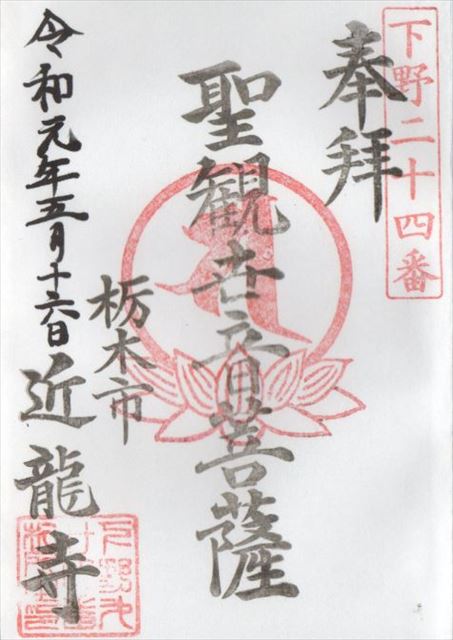 下野二十四番
奉拝
聖観世音菩薩
栃木市
令和元年五月十六日
近龍寺